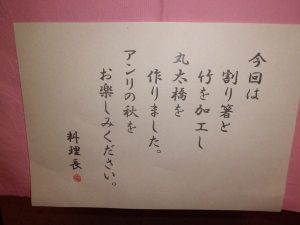 今回は
割り箸と
竹を加工し
丸太橋を
作りました。
アンリの秋を
お楽しみください。
料理長